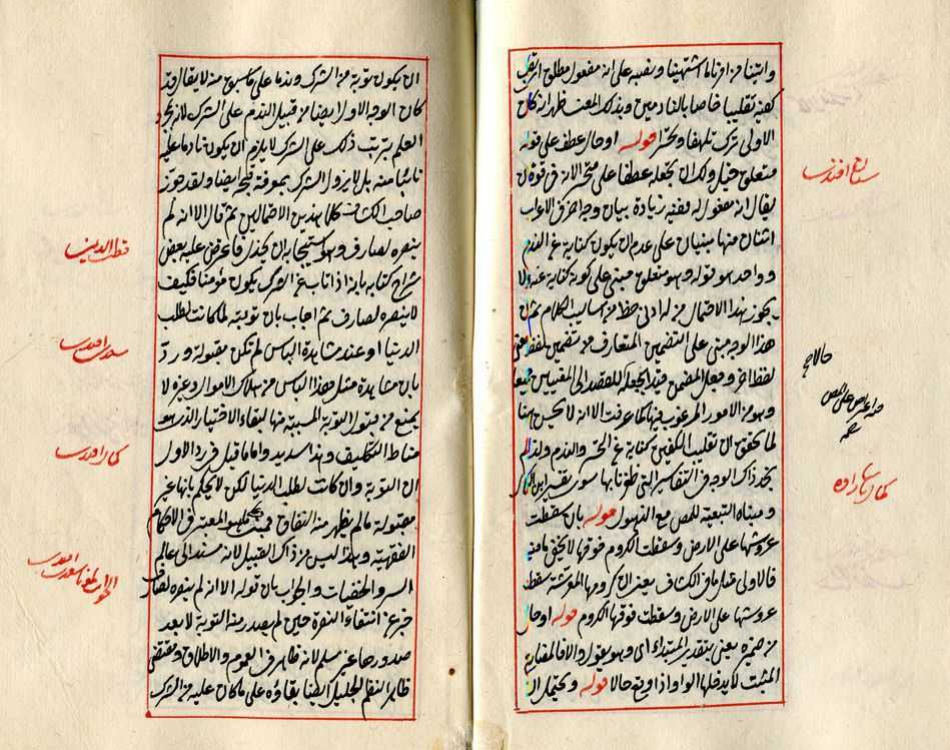 واتينا من امر ما اشتهينا ونصبه على انه مفعول مطلق اى تقلب
كفيه تقليبا خاصا بالنادمين وبذلك المعنى ظهر انه كان
الاولى ترك تلهفا وتحسرا قوله او حال عطف على قوله
متعلق خيل ولك ان تجعله عطفا على متحسرا لانه فى قوة ان
يقال انه مفعول له ففيه زيادة بيان وجه اخر فى الاعراب
اثنان منها مبنيان على عدم ان يكون كناية عن الندم
وواحد هو قوله وهو متعلق مبنى على كونه كناية عنه ولا
يجوز هذا الاحتمال من له ادنى حظ من اساليب الكلام
هذا الوجه مبنى على التضمين المتعارف من تضمين لفظ معنى
لفظ اخر وجعل المضمن
وهو من الامور المرغوب فيها كما عرفت الا انه لا يحسن هنا
لما تحقق ان تقليب الكفين كناية عن التحسر والندم ولذا لم
نجد ذاك الوجه فى التفاسير التى ظفرنا بها سوى تفسير ابن
ومبناه التبعية للمص مع الذهول قوله بان سقطت
عروشها على الارض وسقطت الكروم فوقها لا يخفى ما فيه
فالاولى مثل ما فى الكشاف يعنى ان كرومها المعرشة سقط
عروشها على الارض وسقطت فوقها الكروم قوله او حال
من ضميره يعنى بتقدير المبتداء اى وهو يقول والا فالمضارع
المثبت لا يدخلها الواو اذا وقع حالا قوله ويحتمل ان
سنان افندى
كمال پاشا زاده
ان يكون توبة من الشرك وندما على ما سبق منه لا يقال قد
كان الوجه الاول ايضا من قبيل الندم على الشرك لان مجرد
العلم بترتب ذلك على الشرك لا يلزم ان يكون نادما عليه
تائبا منه بل لا يزول الشرك بمعرفة قبحه ايضا ولقد جوز
صاحب الكشاف كلا هذين الاحتمالين ثم قال الا انه لم
ينصره لصارف وهو استيجابه ان يخذل فاعترض عليه بعض
شراح كتابه بانه اذا تاب عن الشرك يكون مؤمنا فكيف
لا ينصره لصارف ثم اجاب بان توبته لما كانت لطلب
الدنيا او عند مشاهدة الباس لم تكن مقبولة ورد
بان مشاهدة مثل هذا الباس من هلاك الاموال وغيره لا
يمنع من قبول التوبة المسببة منها لبقاء الاختيار الذى هو
مناط التكليف وهذا سديد واما ما قيل فى رد الاول
ان التوبة وان كانت لطلب الدنيا لكن لا يحكم بانها غير
مقبولة ما لم يظهر منه النفاق هو المعتبر فى الاحكام
الفقهية وهذا ليس من ذاك القبيل لانه مستند الى عالم
السر والخفيات والجواب بان قوله الا انه لم ينصره لصارف
خبر عن انتفاء النصرة حين لم يصدر منه التوبة لا بعد
صدورها غير مسلم لانه ظاهر فى العموم والاطلاق ومقتضى
ظاهر النظم الجليل ايضا بقاؤه على ما كان عليه من الشرك
قطب الدين
سعدى افندى